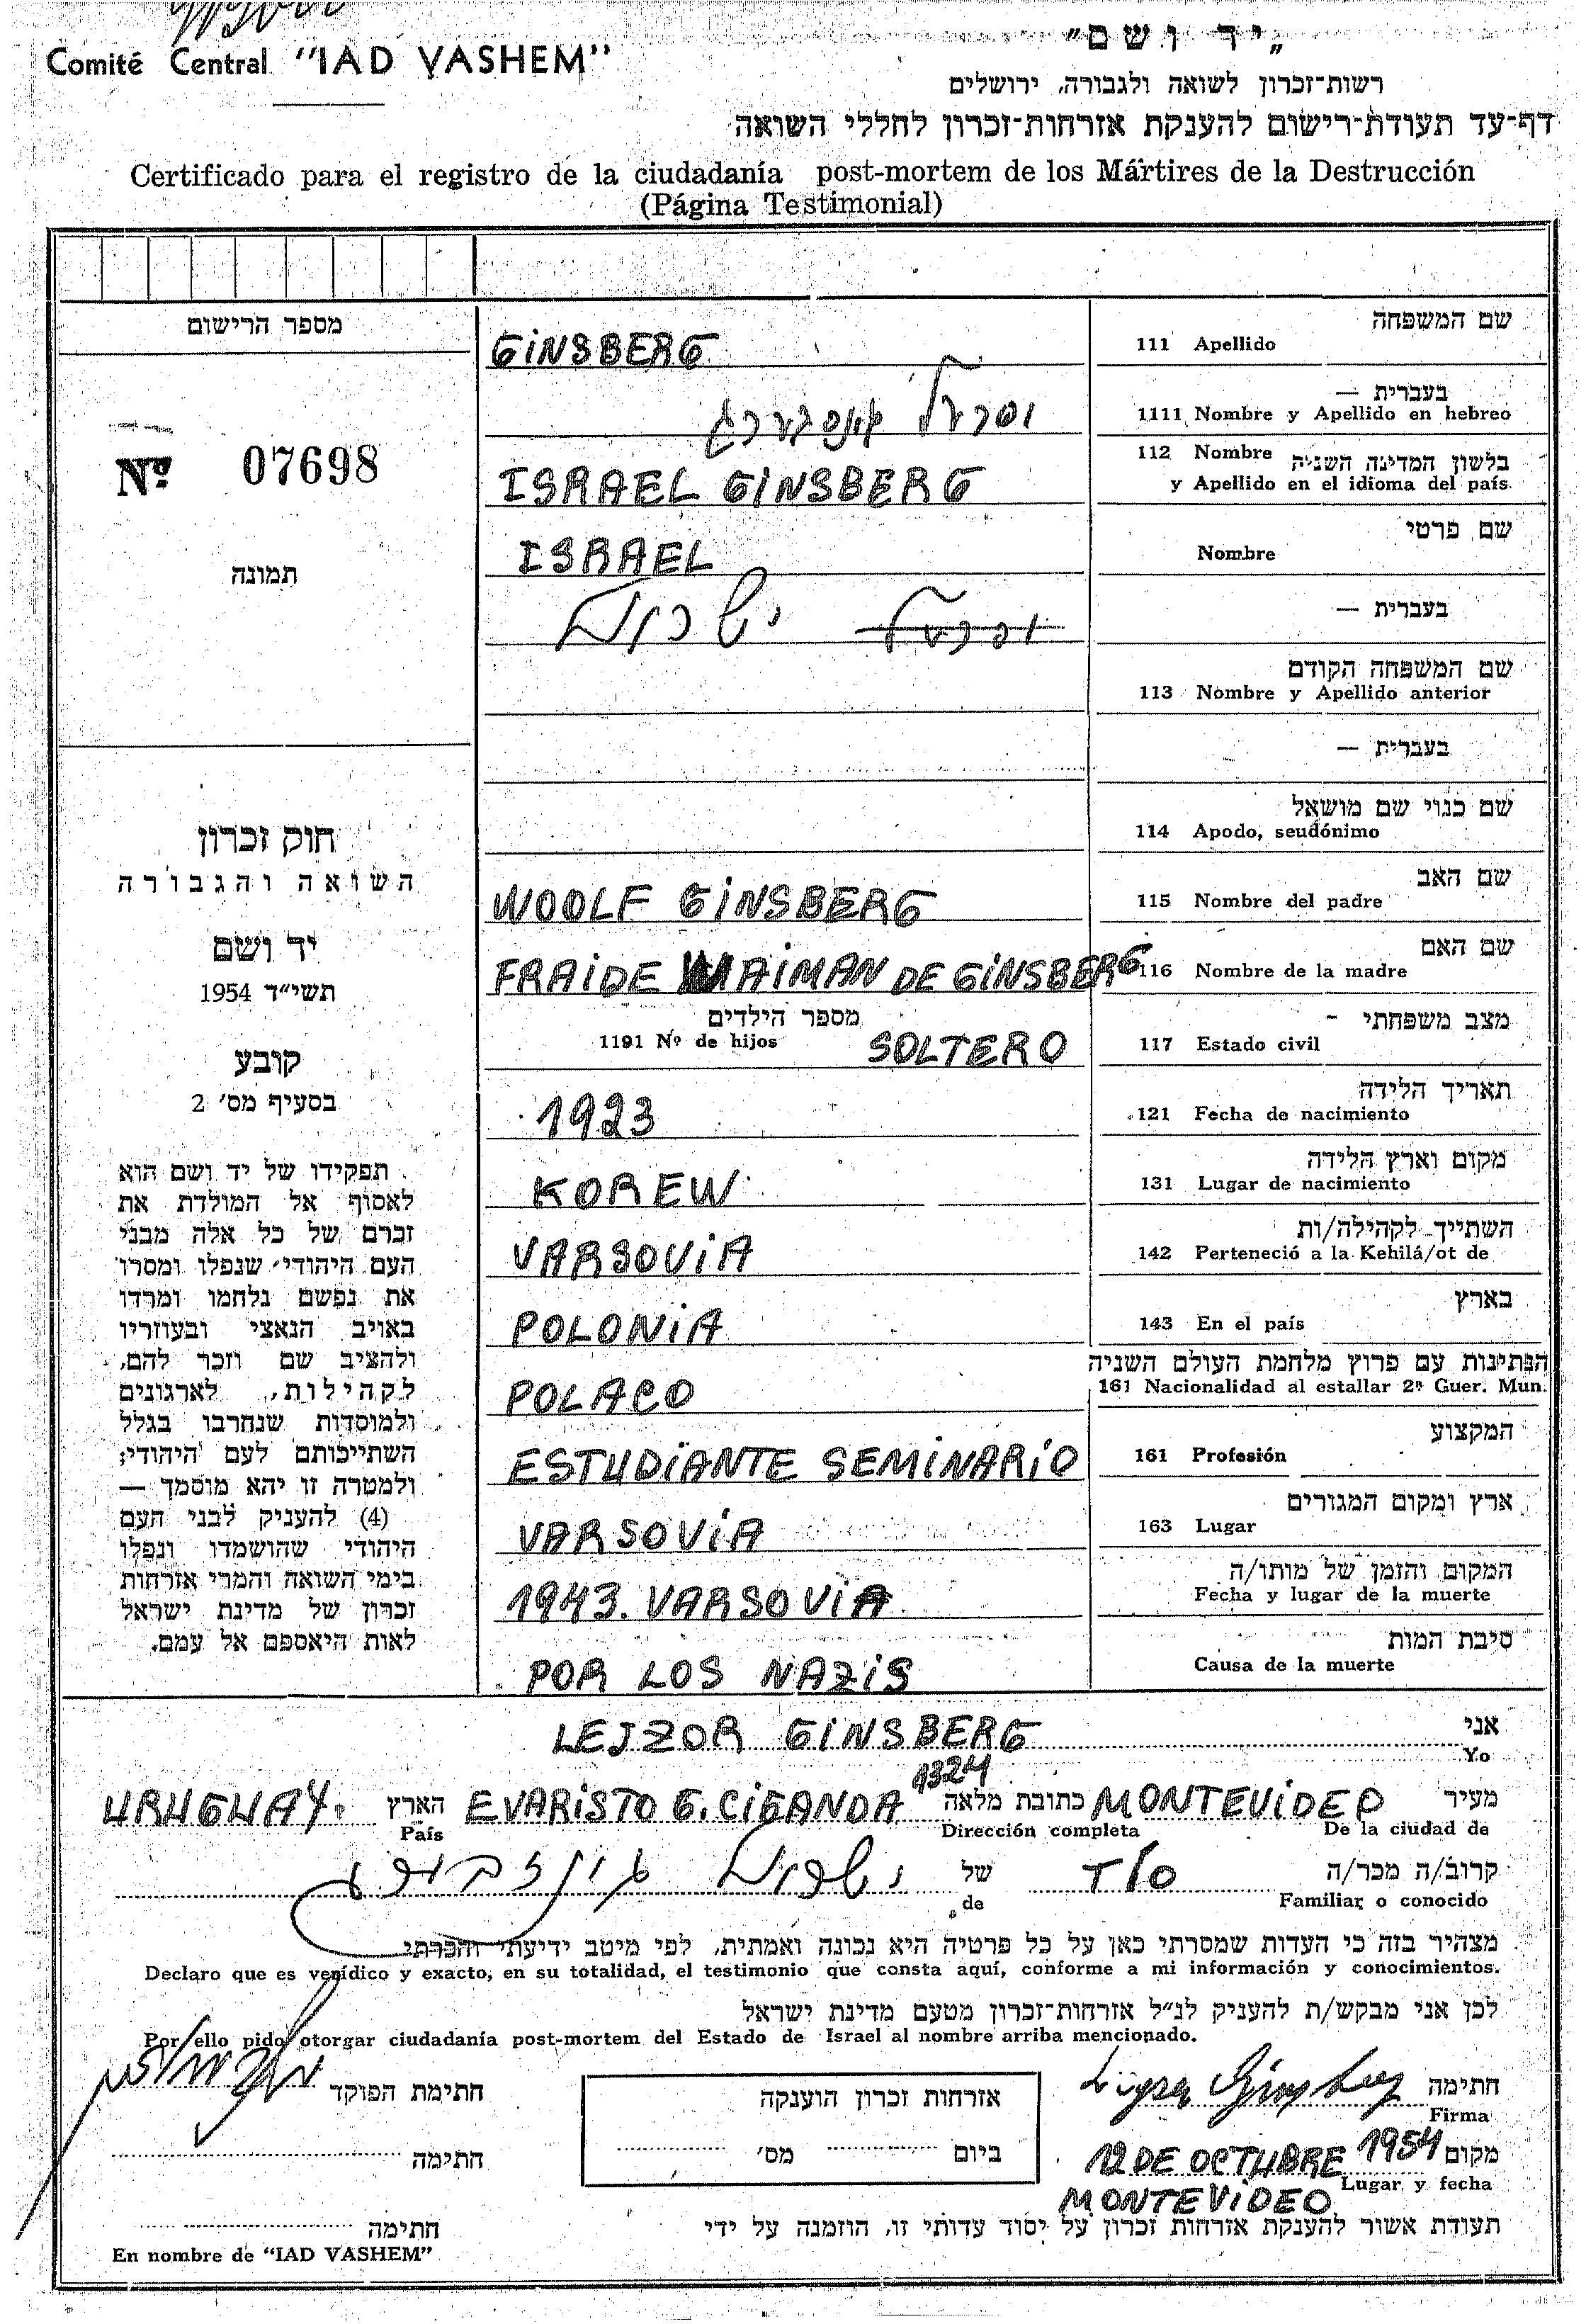 Comité Central "IAD VASHEM"
"יד ושם"
רשות־זכרון לשואה ולגבורה, ירושלים
דף־עד תעודת־רישום להענקת אזרחות־זכרון לחללי השואה
Certificado para el registro de la ciudadanía post-mortem de los Mártires de la Destrucción
(Página Testimonial)
מספר הרישום
Nº 07698
תמונה
חוק זכרון
השואה והגבורה
יד ושם
תשי"ד 1954
קובע
בסעיף מס' 2
תפקידו של יד ושם הוא
לאסוף אל המולדת את
זכרם של כל אלה מבני
העם היהודי, שנפלו ומסרו
את נפשם נלחמו ומרדו
באויב הנאצי ובעוזריו
ולהציב שם וזכר להם,
לקהילות, לארגונים
ולמוסדות שנחרבו בגלל
השתייכותם לעם היהודי;
ולמטרה זו יהא מוסמך —
(4) להעניק לבני העם
היהודי שהושמדו ונפלו
בימי השואה והמרי אזרחות
זכרון של מדינת ישראל
לאות היאספם אל עמם.
שם המשפחה
111 Apellido GINSBERG
בעברית —
1111 Nombre y Apellido en hebreo
112 Nombre בלשון המדינה השניה
y Apellido en el idioma del país ISRAEL GINSBERG
שם פרטי
Nombre ISRAEL
בעברית — ישראל
שם המשפחה הקודם
113 Nombre y Apellido anterior
בעברית —
שם כנוי שם מושאל
114 Apodo, seudónimo
שם האב
115 Nombre del padre WOOLF GINSBERG
שם האם
116 Nombre de la madre FRAIDE WAIMAN DE GINSBERG
מצב משפחתי -
117 Estado civil SOLTERO
מספר הילדים
1191 Nº de hijos
תאריך הלידה
121 Fecha de nacimiento 1923
מקום וארץ הלידה
131 Lugar de nacimiento KOREW
השתייך לקהילה/ות
142 Perteneció a la Kehilá/ot de VARSOVIA
בארץ
143 En el país POLONIA
הנתינות עם פרוץ מלחמת העולם השניה
161 Nacionalidad al estallar 2ª Guer. Mun. POLACO
המקצוע
161 Profesión ESTUDIANTE SEMINARIO
ארץ ומקום המגורים
163 Lugar VARSOVIA
המקום והזמן של מותו/ה
Fecha y lugar de la muerte 1943. VARSOVIA
סיבת המות
Causa de la muerte POR LOS NAZIS
אני
Yo LEJZOR GINSBERG
מעיר MONTEVIDEO כתובת מלאה EVARISTO G. CIGANDA 1324 הארץ URUGUAY.
De la ciudad de Dirección completa País
קרוב/ה מכר/ה TIO של ישראל גינזבורג
Familiar o conocido de
מצהיר בזה כי העדות שמסרתי כאן על כל פרטיה היא נכונה ואמתית, לפי מיטב ידיעתי והכרתי
Declaro que es verídico y exacto, en su totalidad, el testimonio que consta aquí, conforme a mi información y conocimientos.
לכן אני מבקש/ת להעניק לנ"ל אזרחות־זכרון מטעם מדינת ישראל
Por ello pido otorgar ciudadanía post-mortem del Estado de Israel al nombre arriba mencionado.
חתימה
Firma
אזרחות זכרון הוענקה
ביום מס'
חתימת הפוקד
חתימה
מקום 12 DE OCTUBRE 1954
Lugar y fecha
MONTEVIDEO
תעודת אשור להענקת אזרחות זכרון על יסוד עדותי זו, הוזמנה על ידי
חתימה
En nombre de "IAD VASHEM"